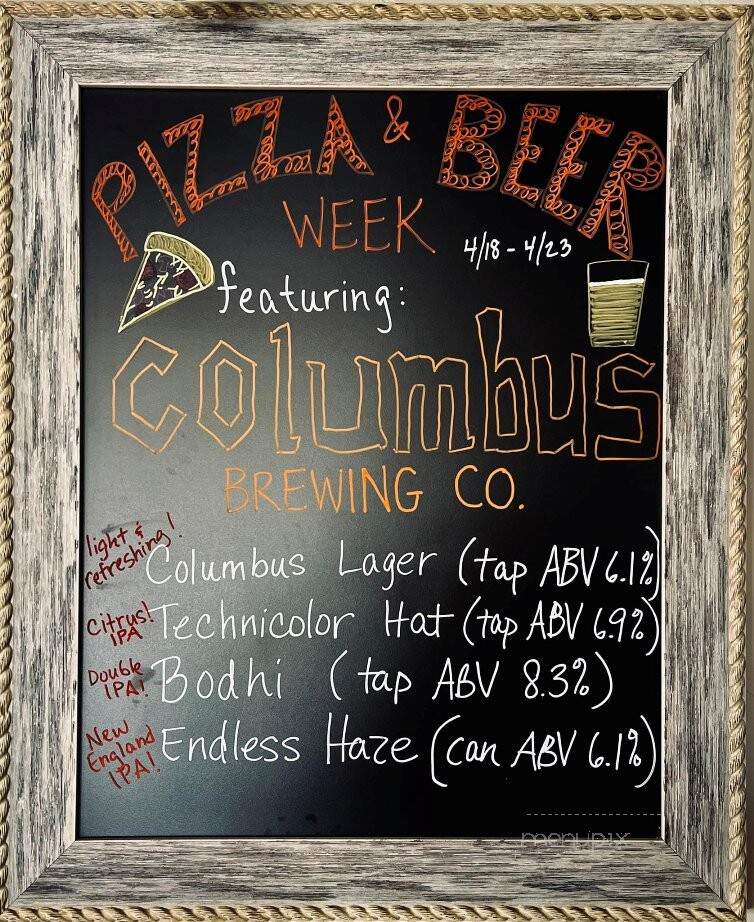 PIZZA & BEER
WEEK 4/18 - 4/23
featuring:
Columbus
BREWING CO.
light &
refreshing! Columbus Lager (tap ABV 6.1%)
Citrus!
IPA Technicolor Hat (tap ABV 6.9%)
Double
IPA! Bodhi (tap ABV 8.3%)
New
England
IPA! Endless Haze (can ABV 6.1%)
menupix